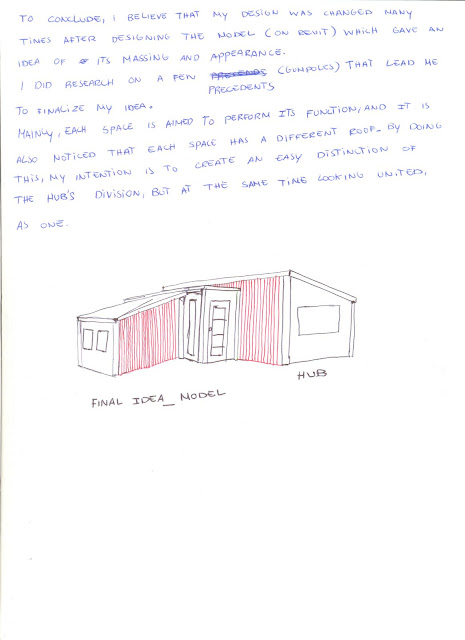 TO CONCLUDE, I BELIEVE THAT MY DESIGN WAS CHANGED MANY
TIMES AFTER DESIGNING THE MODEL (ON REVIT) WHICH GAVE AN
IDEA OF ITS MASSING AND APPEARANCE.
I DID RESEARCH ON A FEW (GUMPOLES) THAT LEAD ME
PRECEDENTS
TO FINALIZE MY IDEA.
MAINLY, EACH SPACE IS AIMED TO PERFORM ITS FUNCTION, AND IT IS
ALSO NOTICED THAT EACH SPACE HAS A DIFFERENT ROOF. BY DOING
THIS, MY INTENTION IS TO CREATE AN EASY DISTINCTION OF
THE HUB'S DIVISION, BUT AT THE SAME TIME LOOKING UNITED,
AS ONE.
HUB
FINAL IDEA_ MODEL